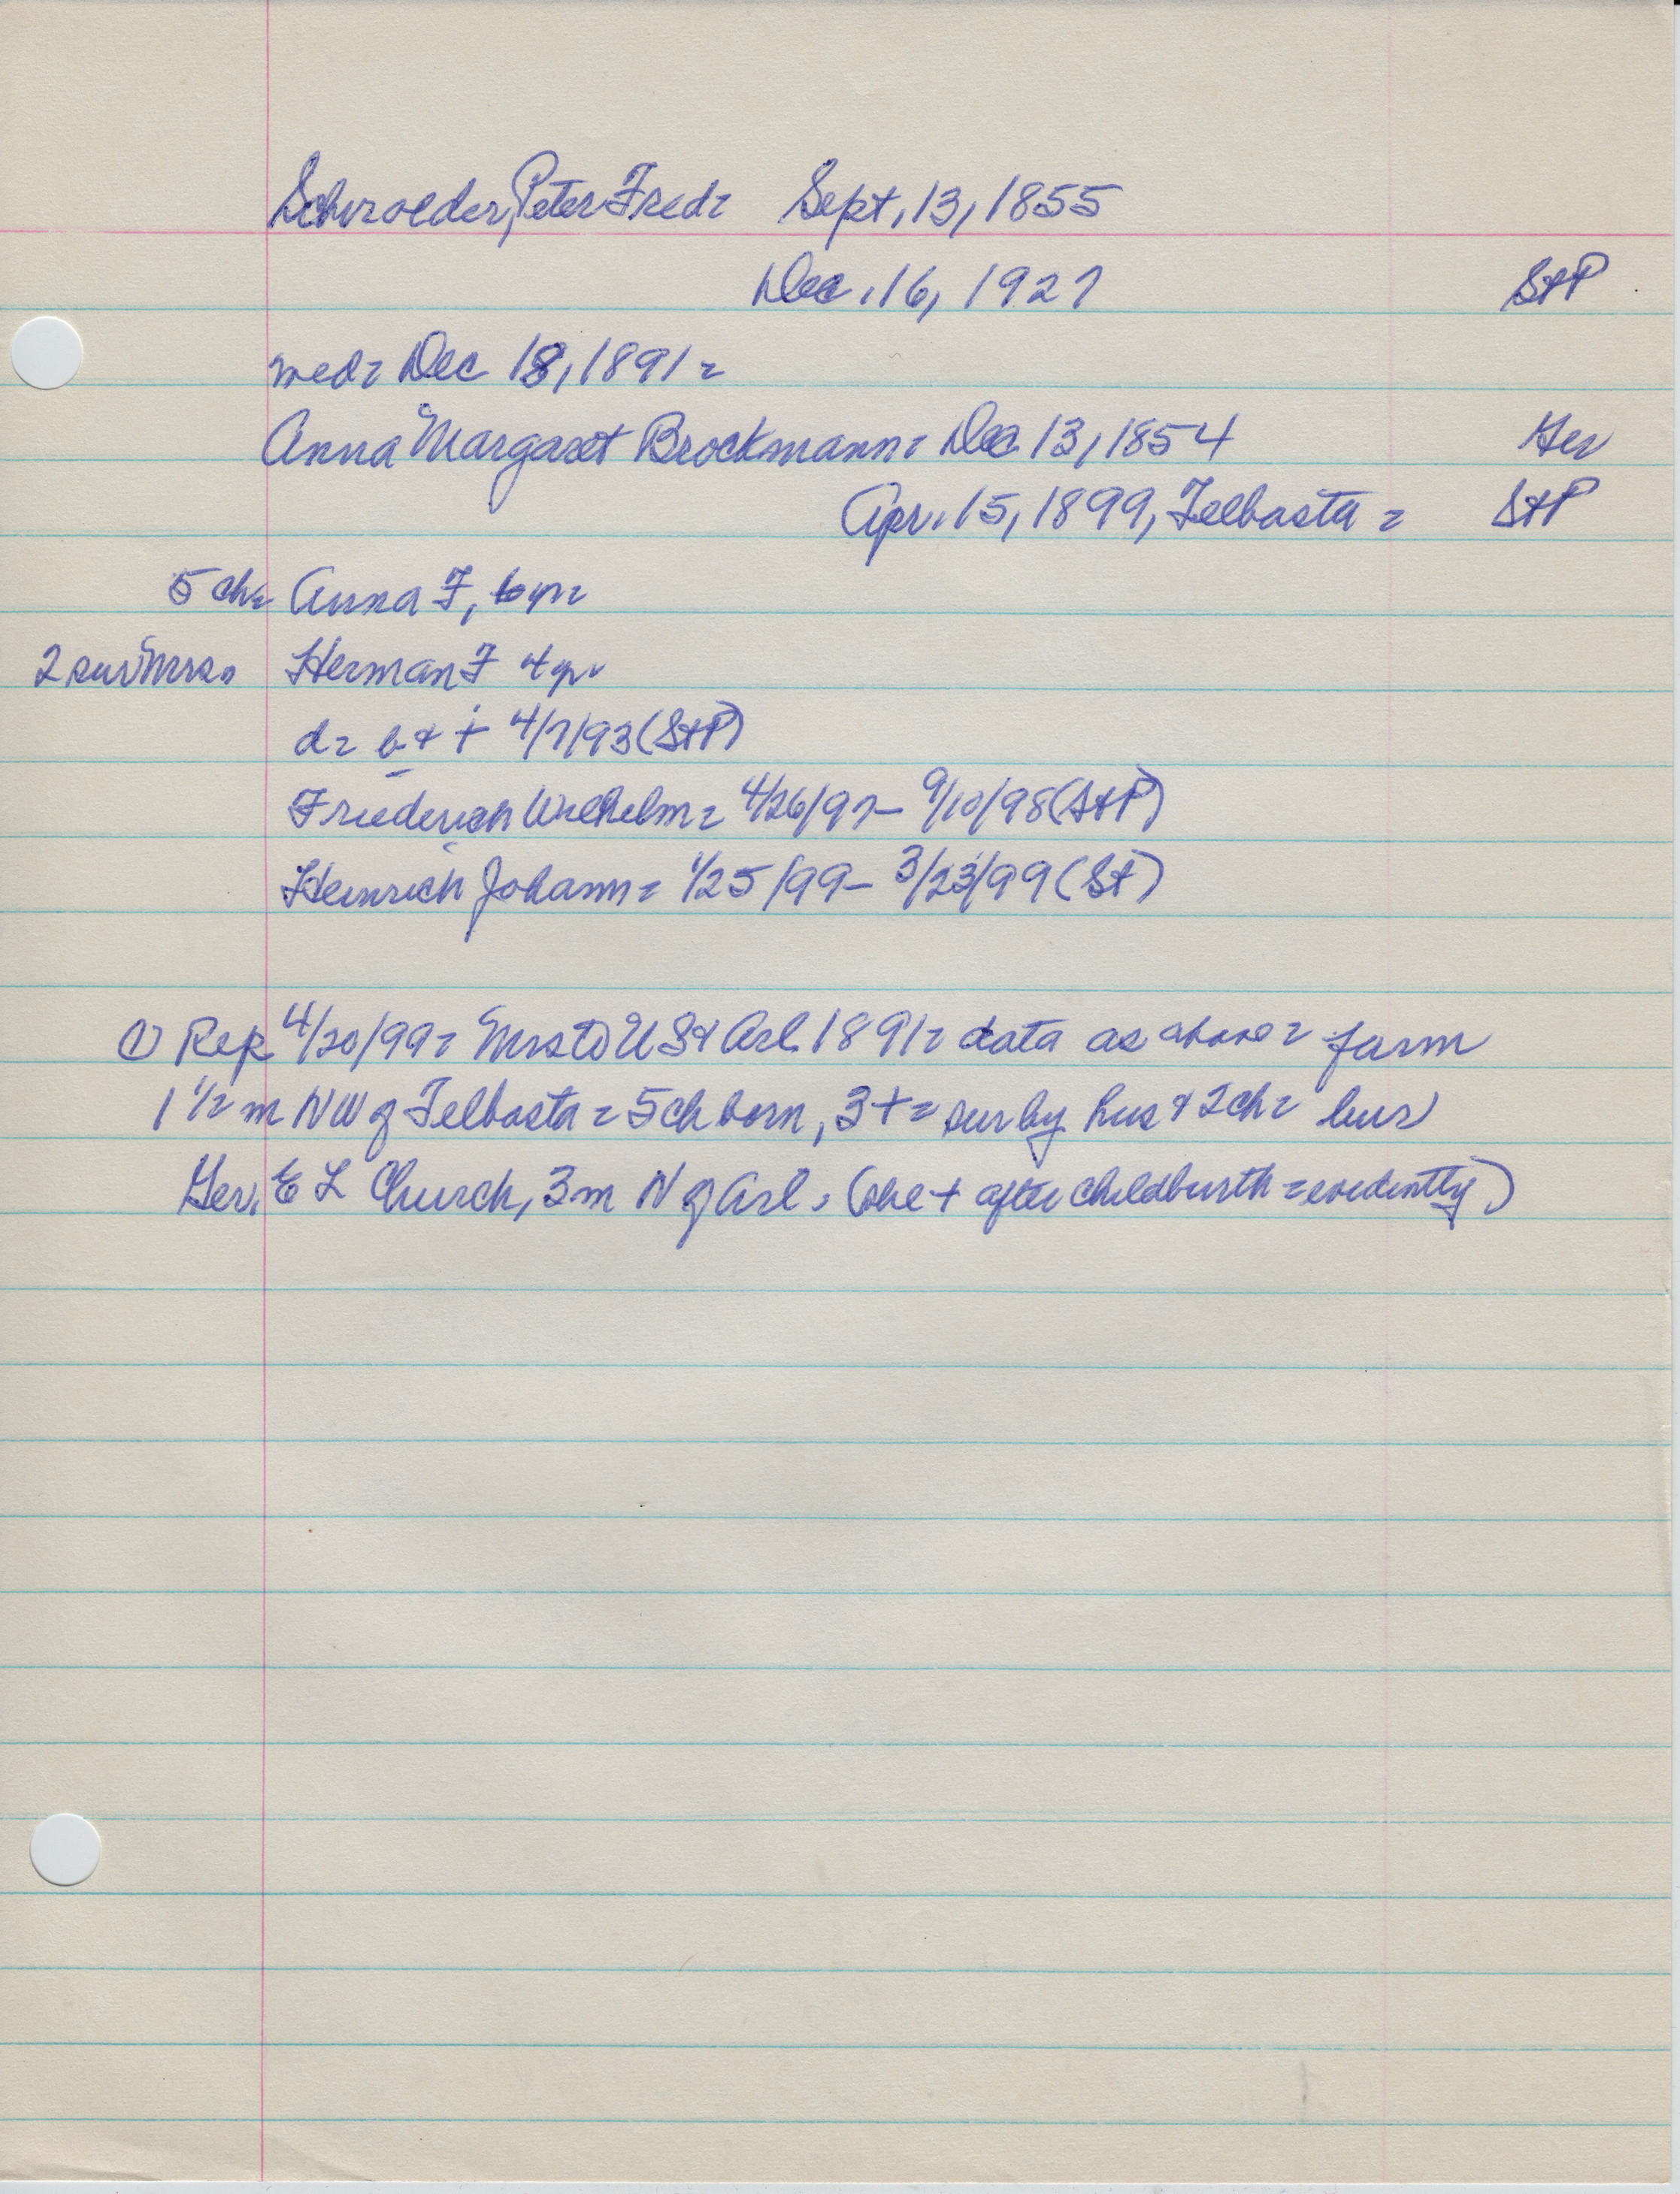 Schroeder, Peter Fred= Sept, 13, 1855
Dec. 16, 1927 StP
med= Dec 18, 1891=
Anna Margaret Brockmann= Dec 13, 1854 Ger
Apr. 15, 1899, Telbasta= StP
5 ch= Anna F, 6 yr=
2 sur Mrs= Herman F 4 yr
d= b & + 4/7/93 (StP)
Friederich Wilhelm= 4/26/97- 9/10/98 (StP)
Heinrich Johann= 1/25/99- 3/23/99 (St)
① Rep 4/20/99= Mrs to US & Arl 1891= data as above= farm
1 1/2 m NW of Telbasta= 5 ch born, 3 += sur by hus & 2 ch= bur
Ger. E L Church, 3 m N of Arl. (she + after childburth= evidently)